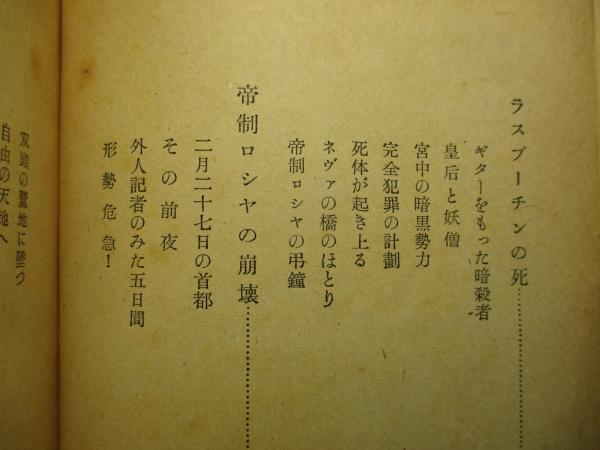 ラスプーチンの死
ギターをもった暗殺者
皇后と妖僧
宮中の暗黒勢力
完全犯罪の計劃
死体が起き上る
ネヴァの橋のほとり
帝制ロシヤの弔鐘
帝制ロシヤの崩壊
二月二十七日の首都
その前夜
外人記者のみた五日間
形勢危急！
双頭の鷲地に墜つ
自由の天地へ